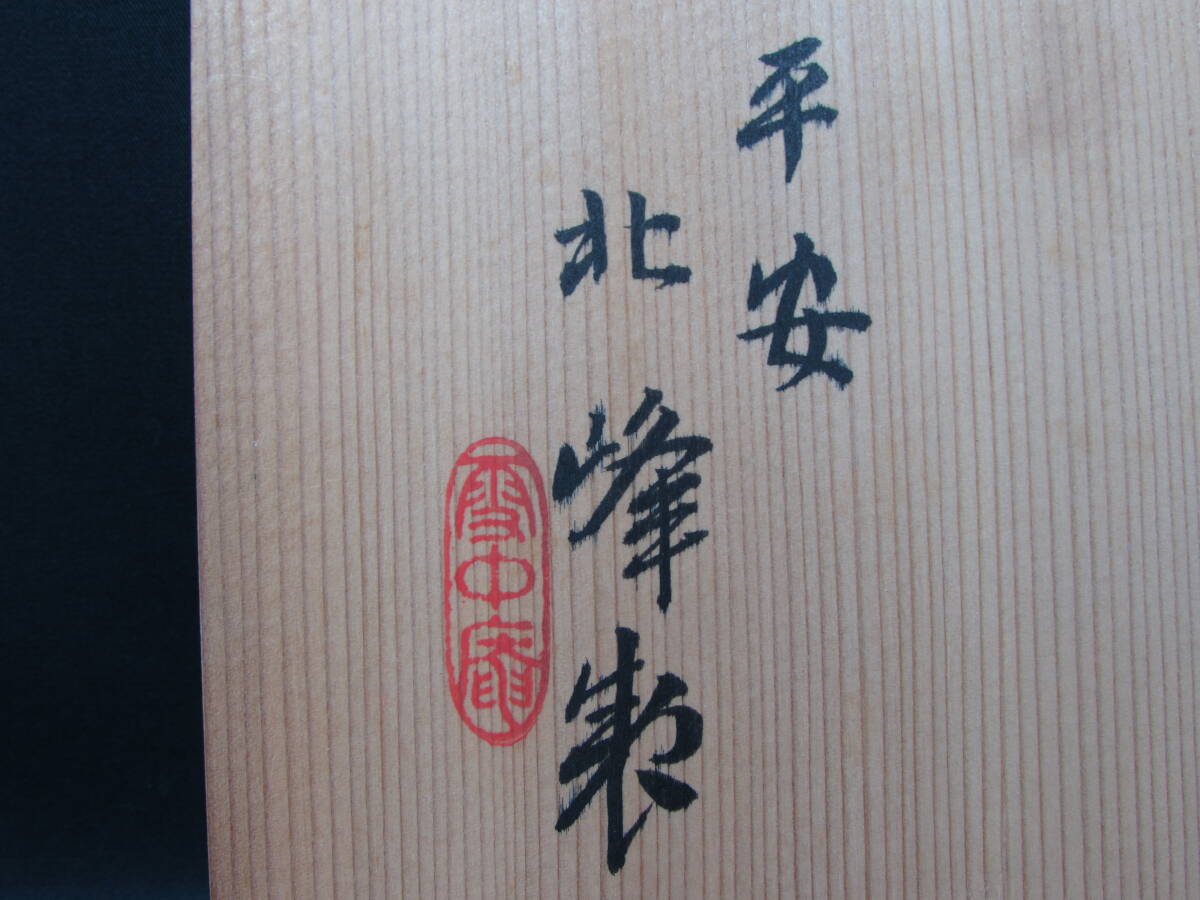 平安
北峰製
雪中庵